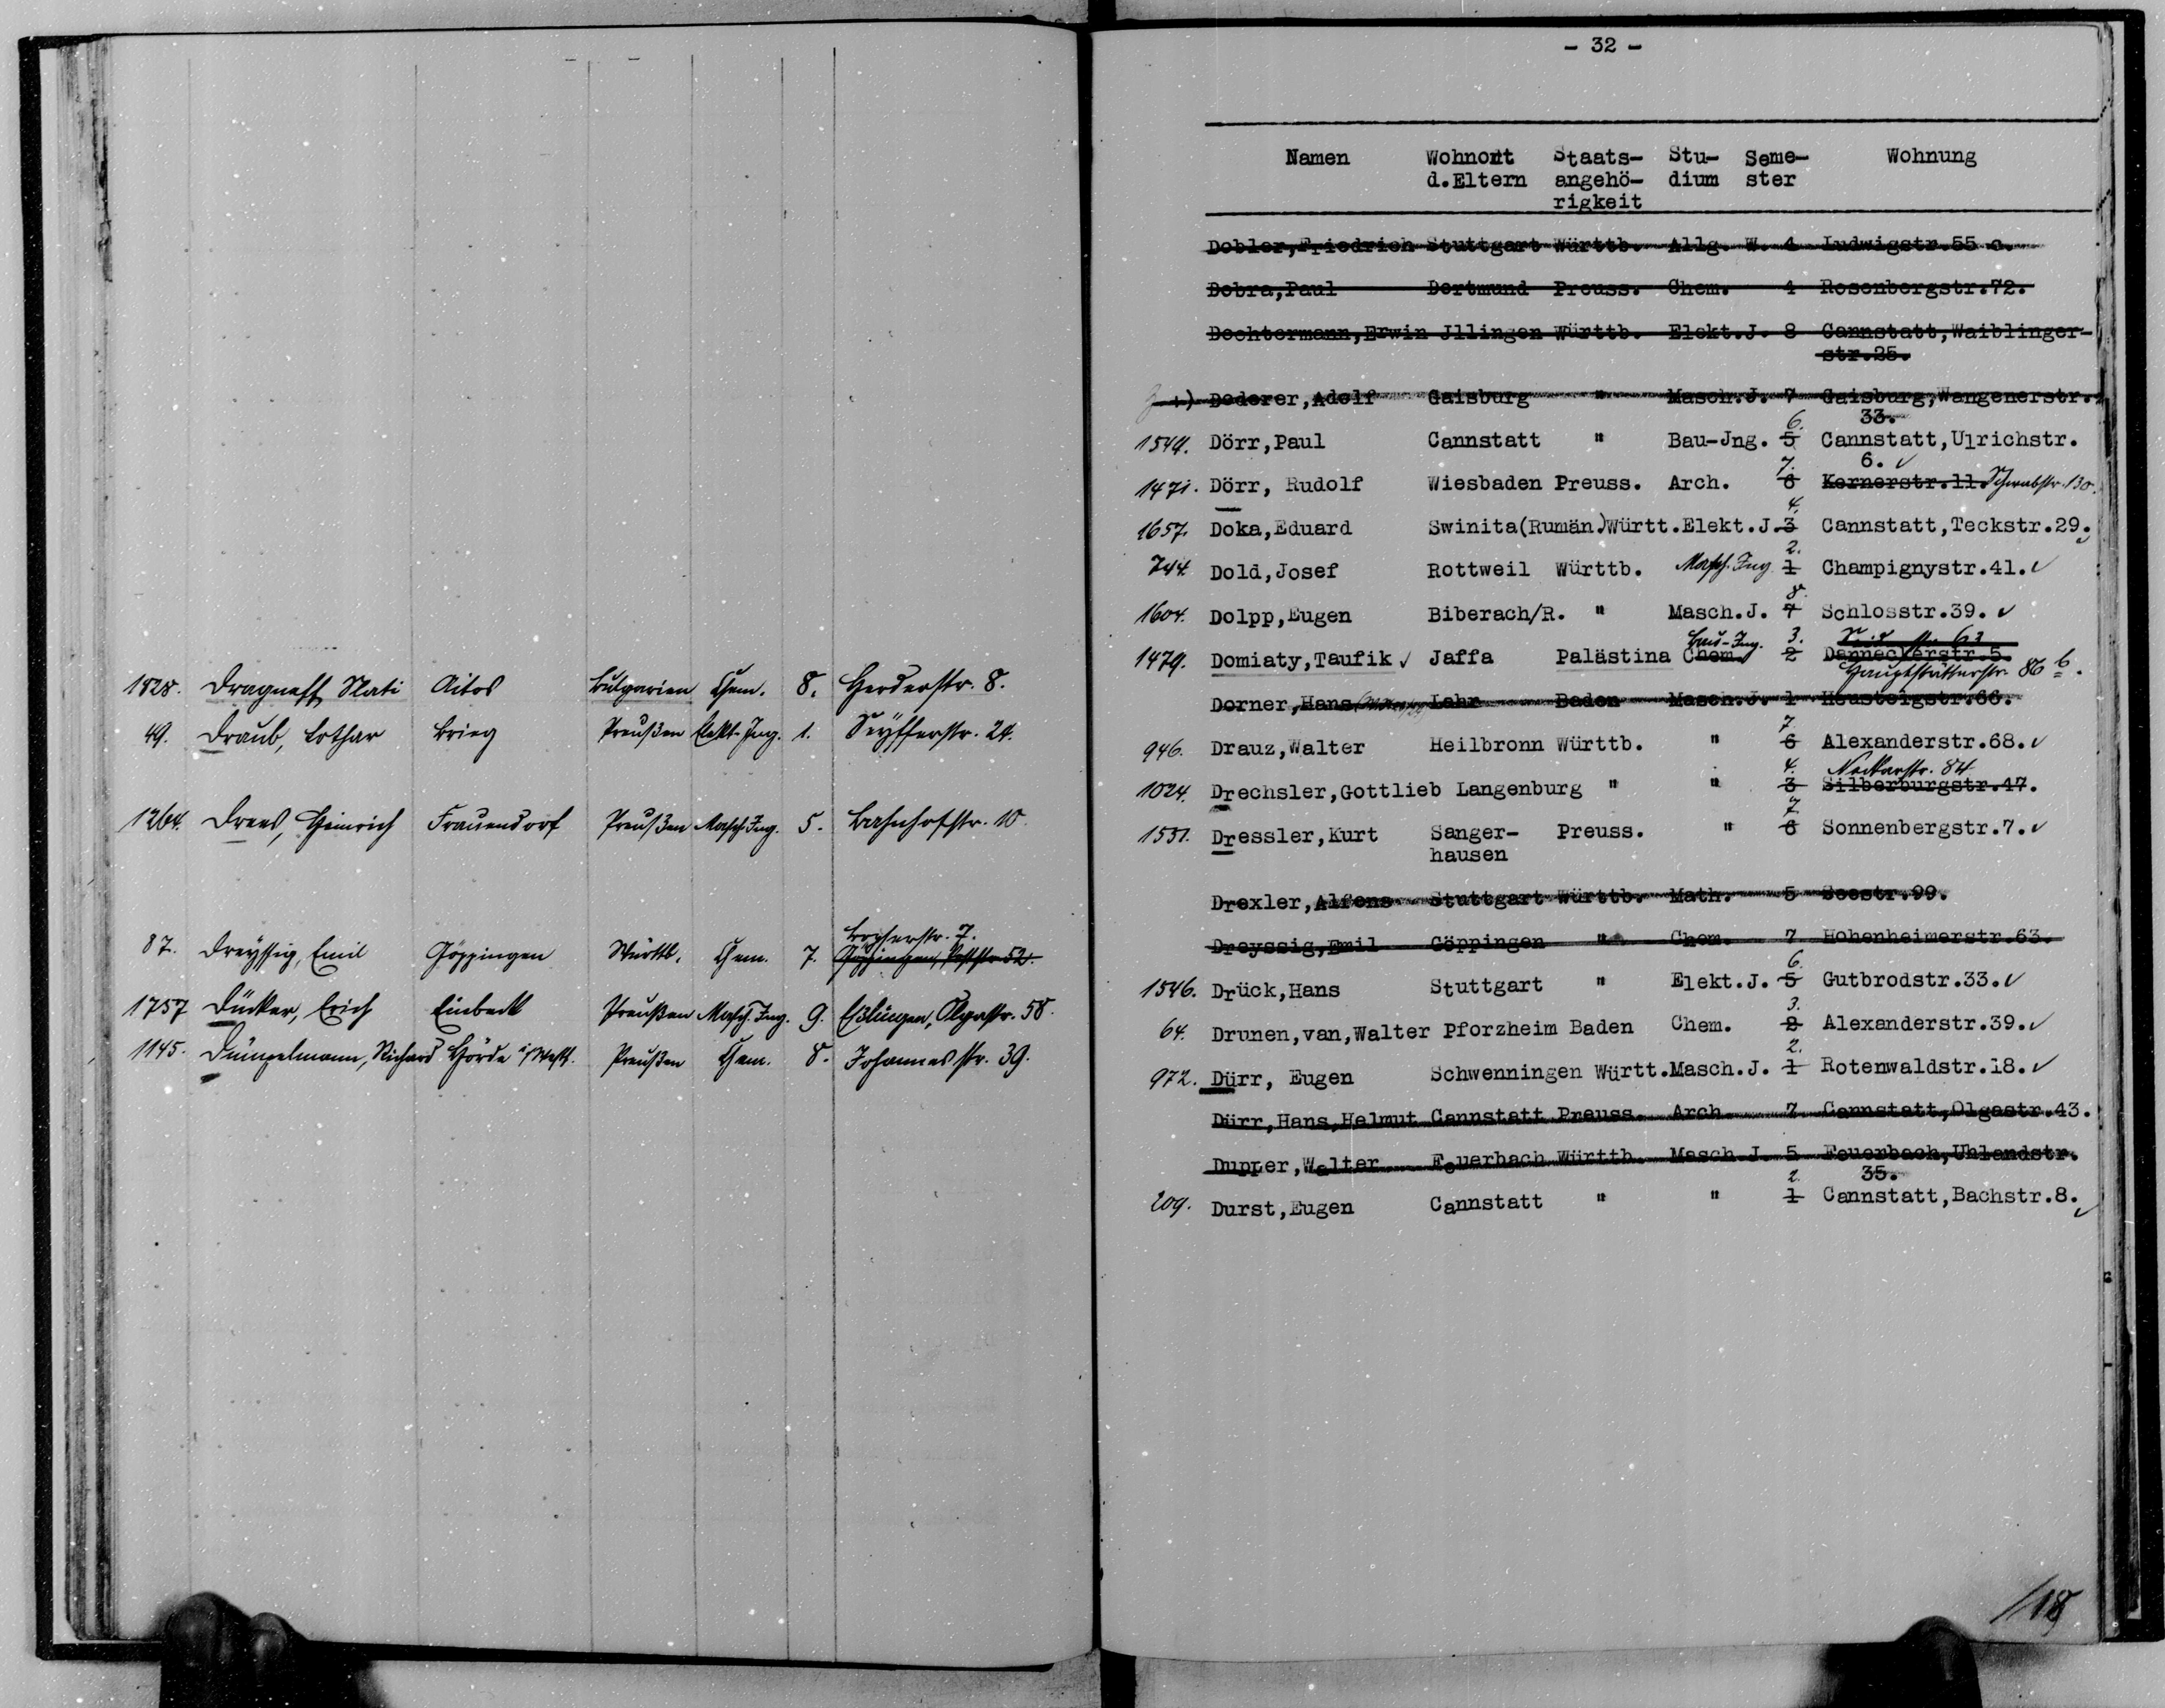 1828. Dragneff, Slati Aitos Bulgarien Chem. 8. Herderstr. 8.
49. Draub, Lothar Brieg Preußen Elekt-Ing. 1. Seyfferstr. 24.
1264. Drees, Heinrich Frauendorf Preußen Masch.Ing. 5. Bahnhofstr. 10.
Bopserstr. 7.
87. Dreyssig, Emil Göppingen Württb. Chem. 7. Göppingen, Poststr. 52.
1757 Dücker, Erich Einbeck Preußen Masch. Ing. 9. Eßlingen, Olgastr. 58.
1145. Düngelmann, Richard Hörde i/Westf. Preußen Chem. 8. Johannesstr. 39.
- 32 -
Namen Wohnort Staats- Stu- Seme- Wohnung
d.Eltern angehö- dium ster
rigkeit
Dobler,Friedrich Stuttgart Württb. Allg. W. 4 Ludwigstr.55 a.
Dobra,Paul Dortmund Preuss. Chem. 4 Rosenbergstr.72.
Dochtermann,Erwin Jllingen Württb. Elekt.J. 8 Cannstatt,Waiblinger-
str.25.
+) Dederer,Adolf Gaisburg " Masch.J. 7 Gaisburg,Wangenerstr.
6. 33.
1544. Dörr,Paul Cannstatt " Bau-Jng. 5 Cannstatt,Ulrichstr.
7. 6. ✓
1471. Dörr, Rudolf Wiesbaden Preuss. Arch. 6 Kernerstr.11. Schwabstr. 130.
4.
1657. Doka,Eduard Swinita(Rumän.)Württ.Elekt.J.3 Cannstatt,Teckstr.29.
2.
744. Dold,Josef Rottweil Württb. Masch. Ing. 1 Champignystr.41. ✓
8.
1604. Dolpp,Eugen Biberach/R. " Masch.J. 7 Schlosstr.39. ✓
Bau-Ing. 3.
1479. Domiaty,Taufik ✓ Jaffa Palästina Chem. 2 Danneckerstr.5.
Hauptstätterstr. 86 b.
Dorner,Hans Lahr Baden Masch.J. 1 Heusteigstr.66.
7
946. Drauz,Walter Heilbronn Württb. " 6 Alexanderstr.68. ✓
4. Neckarstr. 84
1024. Drechsler,Gottlieb Langenburg " " 3 Silberburgstr.47.
7.
1531. Dressler,Kurt Sanger- Preuss. " 6 Sonnenbergstr.7. ✓
hausen
Drexler,Alfons Stuttgart Württb. Math. 5 Seestr.99.
Dreyssig,Emil Göppingen " Chem. 7 Hohenheimerstr.63.
6.
1546. Drück,Hans Stuttgart " Elekt.J. 5 Gutbrodstr.33. ✓
3.
64. Drunen,van,Walter Pforzheim Baden Chem. 2 Alexanderstr.39. ✓
2.
972. Dürr, Eugen Schwenningen Württ.Masch.J. 1 Rotenwaldstr.18. ✓
Dürr,Hans,Helmut Cannstatt Preuss. Arch 7 Cannstatt,Olgastr.43.
Dupper,Walter Feuerbach Württb. Masch.J. 5 Feuerbach,Uhlandstr.
2. 35.
209. Durst,Eugen Cannstatt " " 1 Cannstatt,Bachstr.8. ✓
/18